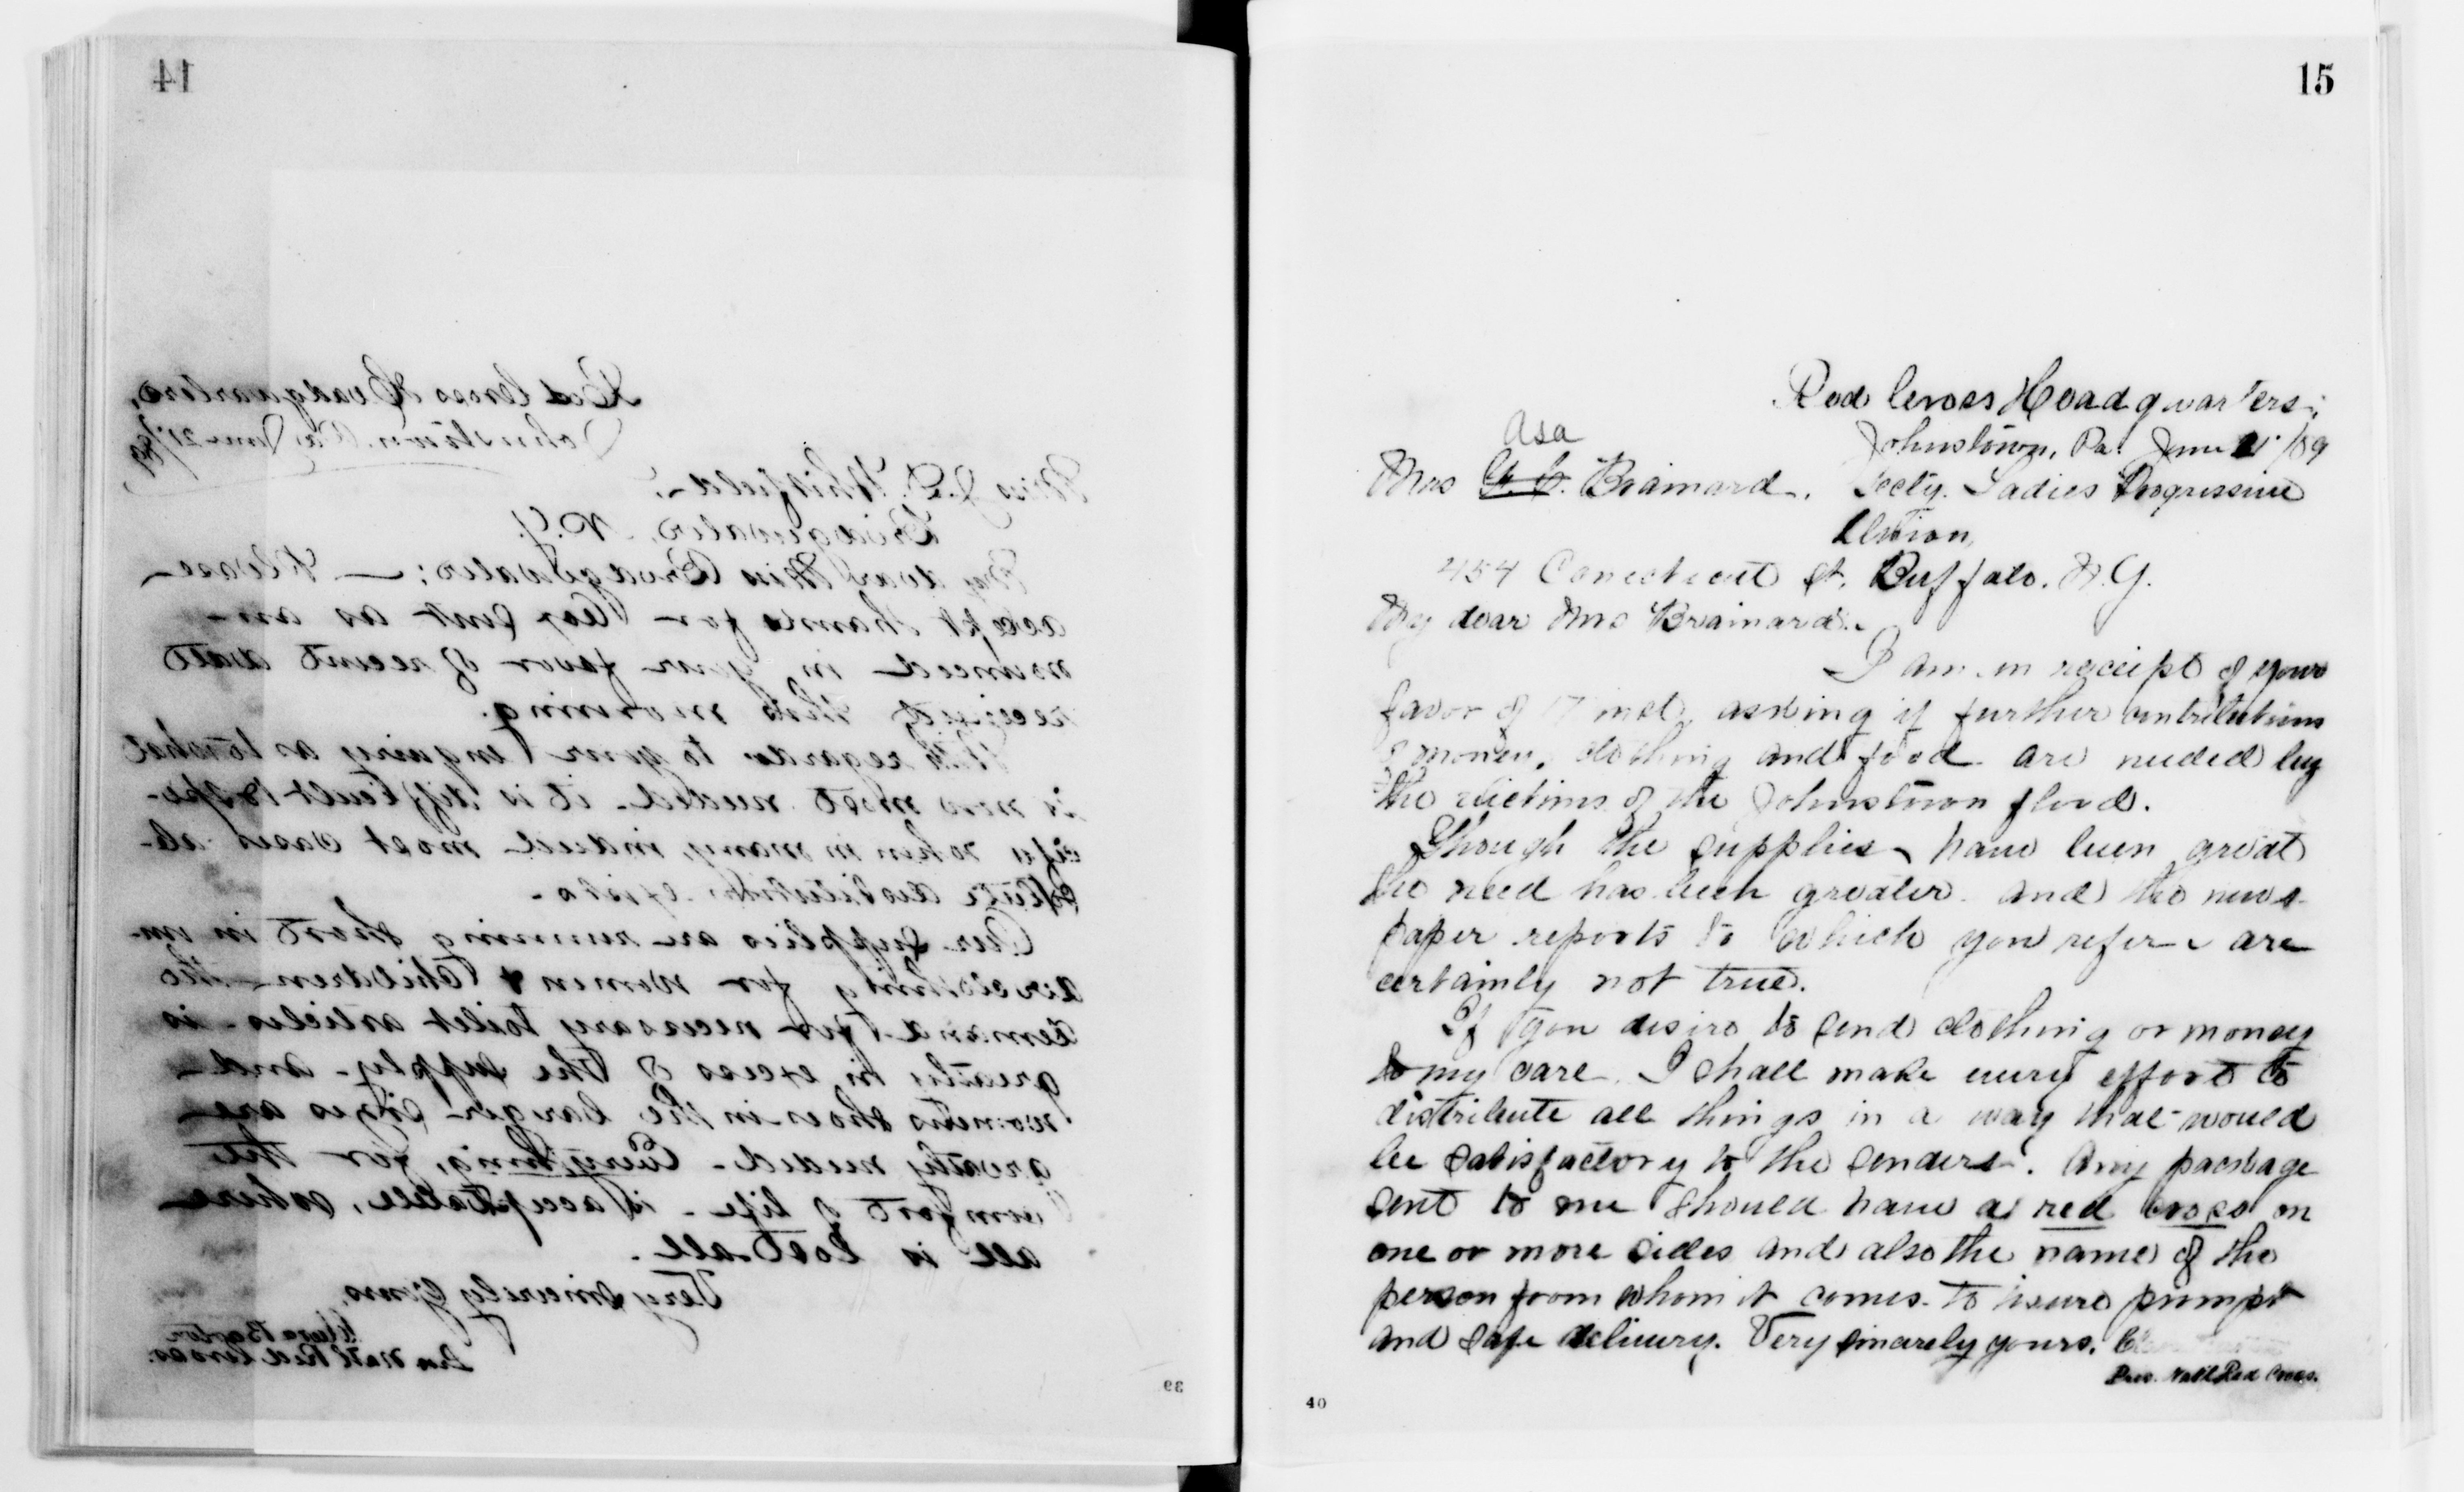 14
Red Cross Headquarters,
Johnstown, Pa, June 21/89
Miss J. D. Whitfield,
Bridgewater, N.Y.
My dear Miss Bridgewater: — Please
accept thanks for Box sent as an-
nounced in your favor of recent date
received this morning.
With regards to your enquiry as to what
is now most needed. it is difficult to spe-
cify when in many, indeed most cases ab-
solute destitution exists -
Our supplies are running short in un-
derclothing for women & children - the
demand for necessary toilet articles - is
greatly in excess of the supply - and
womens shoes in the larger sizes are
greatly needed - Everything, for the
comfort of life - is acceptable, where
all is lost all.
Very sincerely yours,
Clara Barton
Pres Natl Red Cross.
39
15
Red Cross Headquarters,
Johnstown, Pa. June 21/89
Asa
Mrs G. C. Brainard, Secty. Ladies Progressive
454 Conecticut St, Buffalo. N.Y.
My dear Mrs Brainard.
I am in receipt of your
favor of 17 inst, asking if further contributions
of money, clothing and food are needed by
the victims of the Johnstown flood.
Though the supplies have been great
the need has been greater and the news-
paper reports to which you refer are
certainly not true.
If you desire to send clothing or money
to my care, I shall make every effort to
distribute all things in a way that would
be satisfactory to the senders. Any package
sent to me should have a red cross on
one or more sides and also the name of the
person from whom it comes. To insure prompt
and safe delivery. Very sincerely yours,
Pres. Natl Red Cross.
40